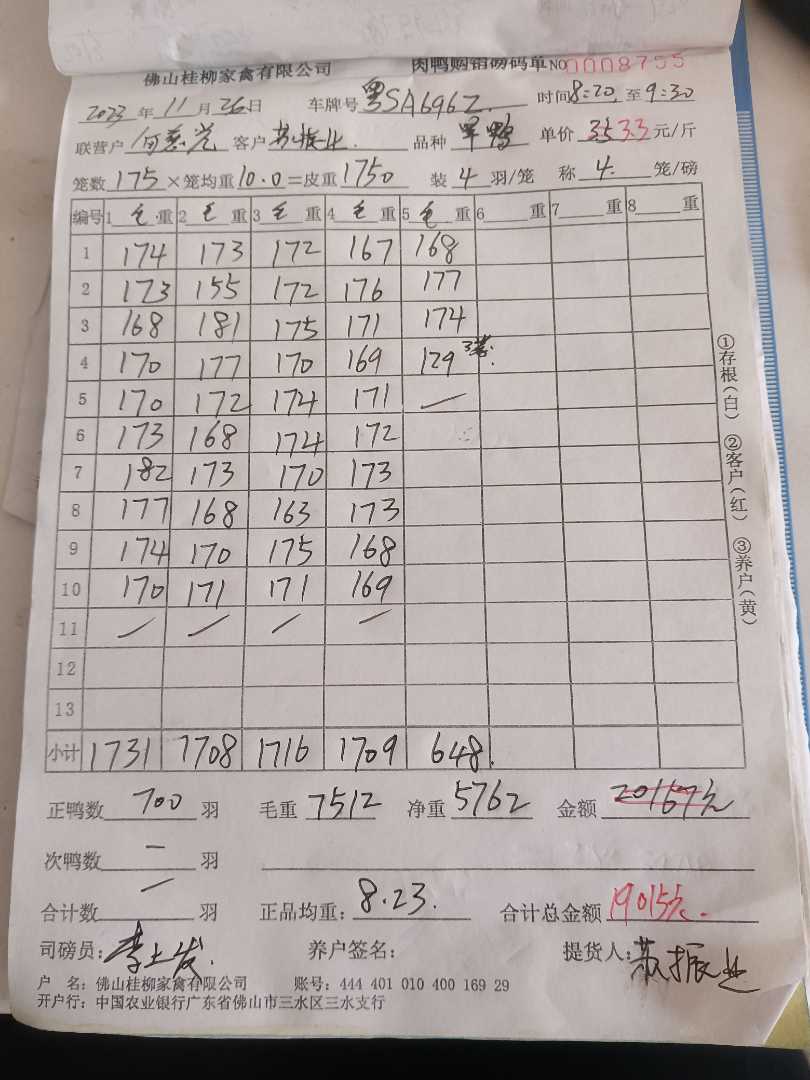 佛山桂柳家禽有限公司 肉鸭购销磅码单 NO 0008755
2023 年 11 月 26 日 车牌号 粤SA6962 时间 8:20 至 9:30
联营户 何 客户 苏振业 品种 旱鸭 单价 3.5 3.3 元/斤
笼数 175 ×笼均重 10.0 =皮重 1750 装 4 羽/笼 称 4 笼/磅
编号 1 毛 重 2 毛 重 3 毛 重 4 毛 重 5 毛 重 6 重 7 重 8 重
1 174 173 172 167 168
2 173 155 172 176 177
3 168 181 175 171 174
4 170 177 170 169 129 3笼
5 170 172 174 171 —
6 173 168 174 172
7 182 173 170 173
8 177 168 163 173
9 174 170 175 168
10 170 171 171 169
11 — — — —
12
13
小计 1731 1708 1716 1709 648
正鸭数 700 羽 毛重 7512 净重 5762 金额 20167元
次鸭数 — 羽
合计数 — 羽 正品均重: 8.23 合计总金额 19015元
司磅员: 李上发 养户签名: 提货人: 苏振业
户 名: 佛山桂柳家禽有限公司 账号: 444 401 010 400 169 29
开户行: 中国农业银行广东省佛山市三水区三水支行
①存根(白) ②客户(红) ③养户(黄)